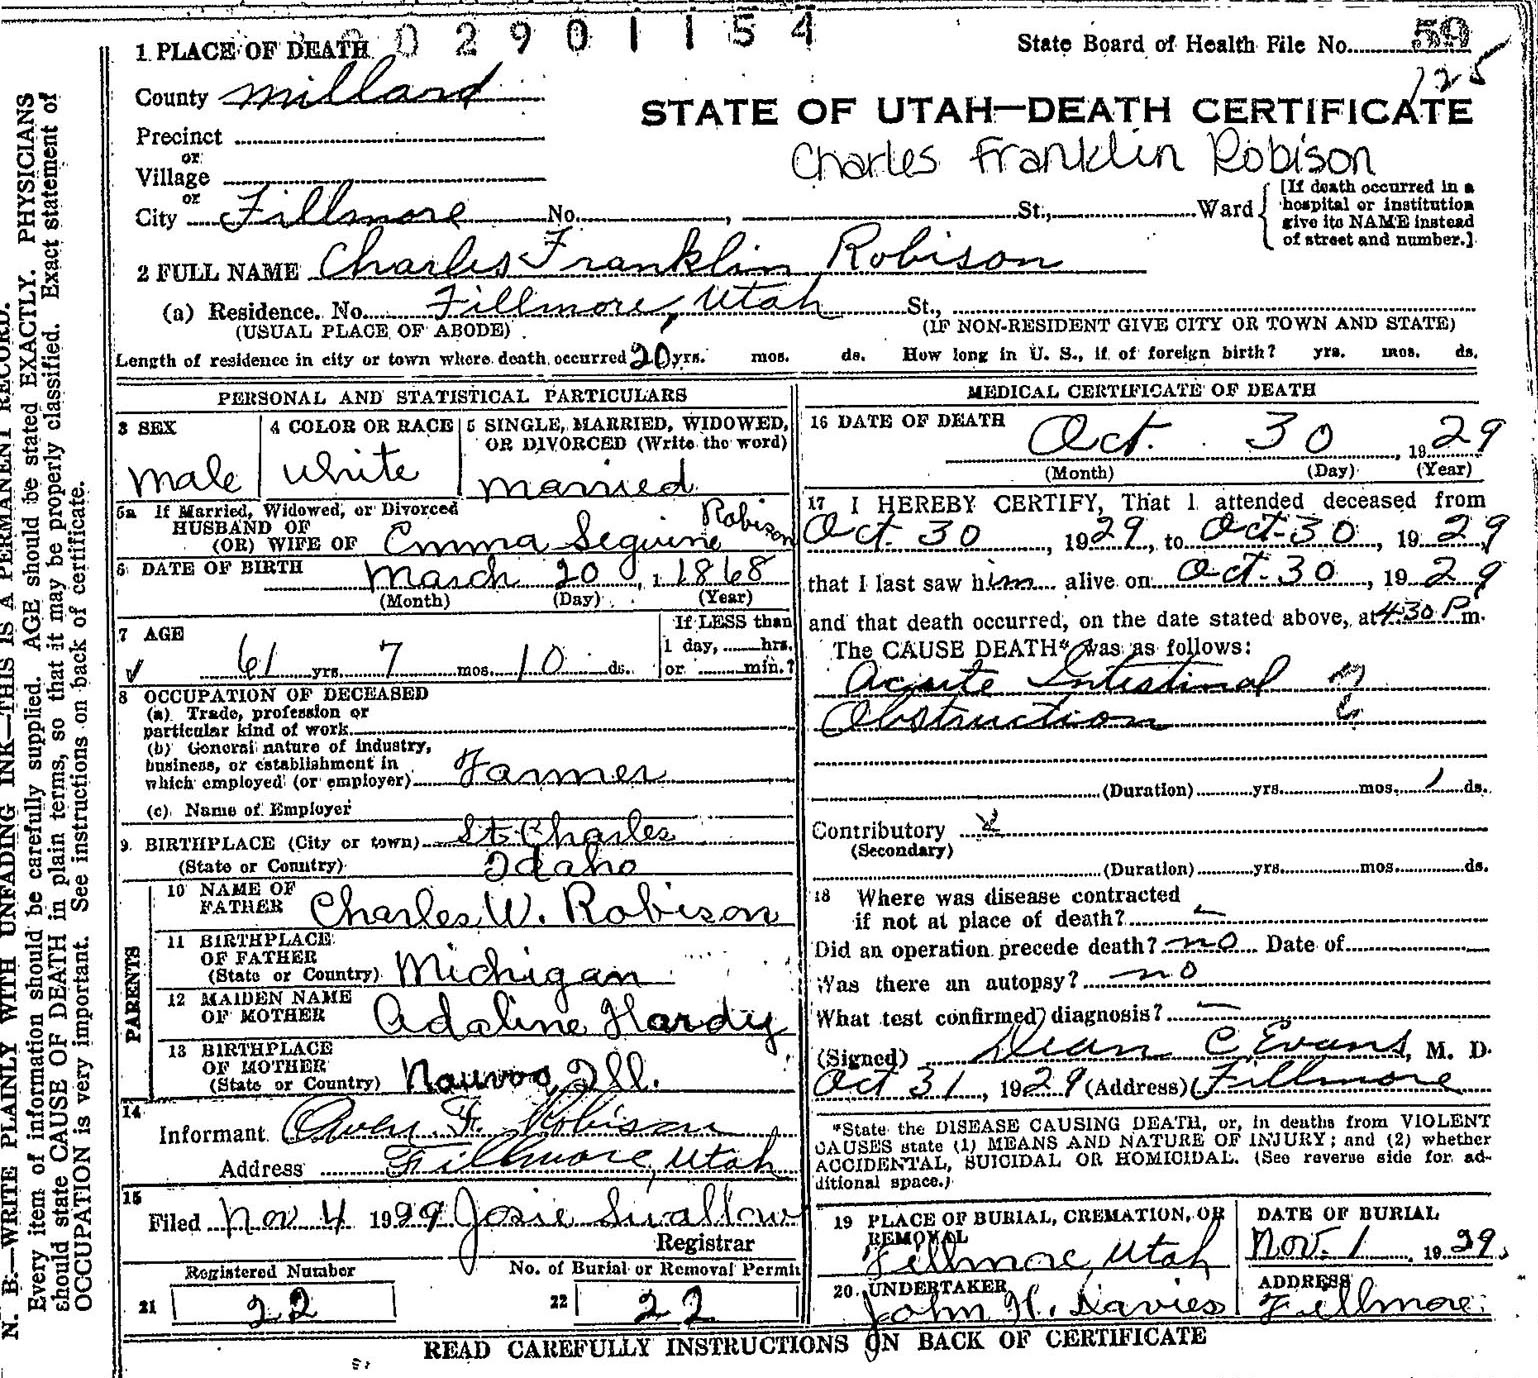 02901154
1 PLACE OF DEATH
State Board of Health File No. 59
125
County Millard
STATE OF UTAH—DEATH CERTIFICATE
Precinct
or
Village
Charles Franklin Robison
or
City Fillmore No. , St., Ward
[If death occurred in a
hospital or institution
give its NAME instead
of street and number.]
2 FULL NAME Charles Franklin Robison
(a) Residence. No. Fillmore, Utah St.,
(USUAL PLACE OF ABODE) (IF NON-RESIDENT GIVE CITY OR TOWN AND STATE)
Length of residence in city or town where death occurred 20 yrs. mos. ds. How long in U. S., if of foreign birth? yrs. mos. ds.
PERSONAL AND STATISTICAL PARTICULARS
3 SEX
Male
4 COLOR OR RACE
White
5 SINGLE, MARRIED, WIDOWED,
OR DIVORCED (Write the word)
Married
5a If Married, Widowed, or Divorced
HUSBAND OF
(OR) WIFE OF Emma Seguine Robison
6 DATE OF BIRTH March 20, 1868
(Month) (Day) (Year)
7 AGE
61 yrs. 7 mos. 10 ds.
If LESS than
1 day, hrs.
or min.?
8 OCCUPATION OF DECEASED
(a) Trade, profession or
particular kind of work
(b) General nature of industry,
business, or establishment in
which employed (or employer) Farmer
(c) Name of Employer
9 BIRTHPLACE (City or town) St. Charles
(State or Country) Idaho
PARENTS
10 NAME OF
FATHER Charles W. Robison
11 BIRTHPLACE
OF FATHER
(State or Country) Michigan
12 MAIDEN NAME
OF MOTHER Adaline Hardy
13 BIRTHPLACE
OF MOTHER
(State or Country) Nauvoo, Ill.
14
Informant Owen F. Robison
Address Fillmore, Utah
15
Filed Nov 4 1929 Josie Swallow
Registrar
Registered Number
21 22
No. of Burial or Removal Permit
22 22
MEDICAL CERTIFICATE OF DEATH
16 DATE OF DEATH Oct. 30, 1929
(Month) (Day) (Year)
17 I HEREBY CERTIFY, That I attended deceased from
Oct. 30, 1929, to Oct-30, 1929
that I last saw him alive on Oct-30, 1929
and that death occurred, on the date stated above, at 4:30 P m.
The CAUSE DEATH* was as follows:
Acute Intestinal
Obstruction
(Duration) yrs. mos. 1 ds.
Contributory
(Secondary)
(Duration) yrs. mos. ds.
18 Where was disease contracted
if not at place of death? —
Did an operation precede death? no Date of
Was there an autopsy? no
What test confirmed diagnosis? —
(Signed) Dean C Evans, M. D.
Oct 31, 1929 (Address) Fillmore
*State the DISEASE CAUSING DEATH, or, in deaths from VIOLENT
CAUSES state (1) MEANS AND NATURE OF INJURY; and (2) whether
ACCIDENTAL, SUICIDAL OR HOMICIDAL. (See reverse side for ad-
ditional space.)
19 PLACE OF BURIAL, CREMATION, OR
REMOVAL
Fillmore, Utah
DATE OF BURIAL
Nov. 1, 1929.
20 UNDERTAKER
John H. Davies
ADDRESS
Fillmore
READ CAREFULLY INSTRUCTIONS ON BACK OF CERTIFICATE
N. B.—WRITE PLAINLY WITH UNFADING INK—THIS IS A PERMANENT RECORD.
Every item of information should be carefully supplied. AGE should be stated EXACTLY. PHYSICIANS
should state CAUSE OF DEATH in plain terms, so that it may be properly classified. Exact statement of
OCCUPATION is very important. See instructions on back of certificate.